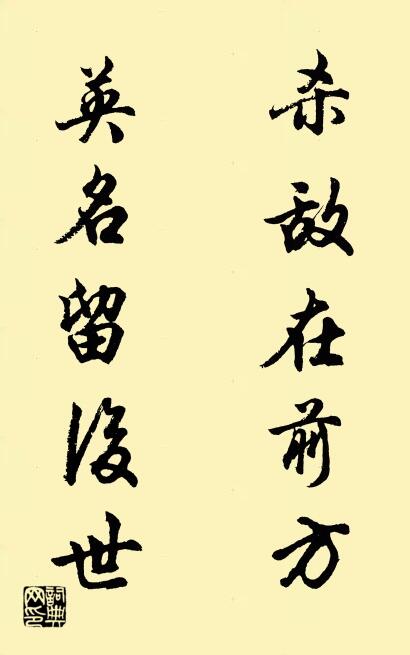 杀敌在前方
英名留後世
詞典网印